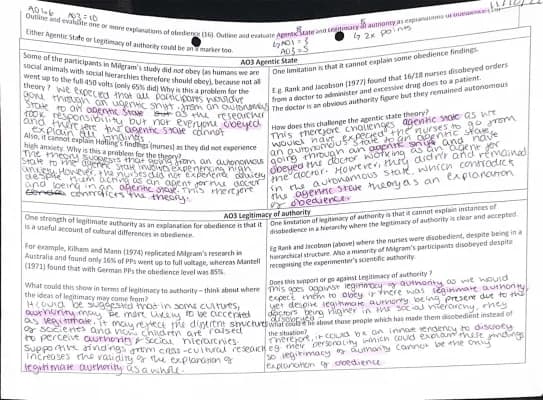 AO1=6 AO3=10
Outline and evaluate one or more explanations of obedience (16). Outline and evaluate Agentic State and Legitimacy of authority as explanations of obedience (16)
AO1 = 3
AO3 = 5
2x points
Either Agentic State or Legitimacy of authority could be a marker too.
AO3 Agentic State
Some of the participants in Milgram's study did not obey (as humans we are
social animals with social hierarchies therefore should obey), because not all
went up to the full 450 volts (only 65% did) Why is this a problem for the
theory? We expected that all participants would've
gone through an agentic shift from an autonomous
state to an agentic state as the researcher
took responsibility but not everyone obeyed
and therefore the agentic state cannot
explain all findings
Also, it cannot explain Hofling's findings (nurses) as they did not experience
high anxiety. Why is this a problem for the theory?
The theory suggests that going from an autonomous
state to the agentic state involves experiencing high
anxiety. However, the nurses did not experience anxiety
despite them acting as an agent for the doctor
and being in an agentic state. This therefore
contradicts the theory.
One limitation is that it cannot explain some obedience findings.
E.g. Rank and Jacobson (1977) found that 16/18 nurses disobeyed orders
from a doctor to administer and excessive drug does to a patient.
The doctor is an obvious authority figure but they remained autonomous
How does this challenge the agentic state theory?
This therefore challenges agentic state as we
would have expected the nurses to go from
an autonomous state to an agentic state,
going through an agentic shift and have
obeyed the doctor working as an agent for
the doctor. However, they didn't and remained
in the autonomous state, which contradicts
the agentic state theory as an explanation
of obedience.
AO3 Legitimacy of authority
One strength of legitimate authority as an explanation for obedience is that it
is a useful account of cultural differences in obedience.
For example, Kilham and Mann (1974) replicated Milgram's research in
Australia and found only 16% of PPs went up to full voltage, whereas Mantell
(1971) found that with German PPs the obedience level was 85%.
What could this show in terms of legitimacy to authority – think about where
the ideas of legitimacy may come from?
It could be suggested that in some cultures,
authority may be more likely to be accepted
as legitimate. It may reflect the different structures
of societies and how children are raised
to perceive authority & social hierarchies.
Supportive findings from cross-cultural research
increases the validity of the explanation of
legitimate authority as a whole.
One limitation of legitimacy of authority is that it cannot explain instances of
disobedience in a hierarchy where the legitimacy of authority is clear and accepted.
Eg Rank and Jacobson (above) where the nurses were disobedient, despite being in a
hierarchical structure. Also a minority of Milgram's participants disobeyed despite
recognising the experimenter's scientific authority.
Does this support or go against Legitimacy of authority ?
This goes against legitimacy of authority as we would
expect them to obey if there was legitimate authority,
yet despite legitimate authority being present due to the
doctors being higher in the social hierarchy, they
disobeyed
What could it be about those people which has made them disobedient instead of
the situation?
Therefore, it could be an innate tendency to disobey
eg their personality which could explain these findings
so legitimacy of authority cannot be the only
explanation of obedience